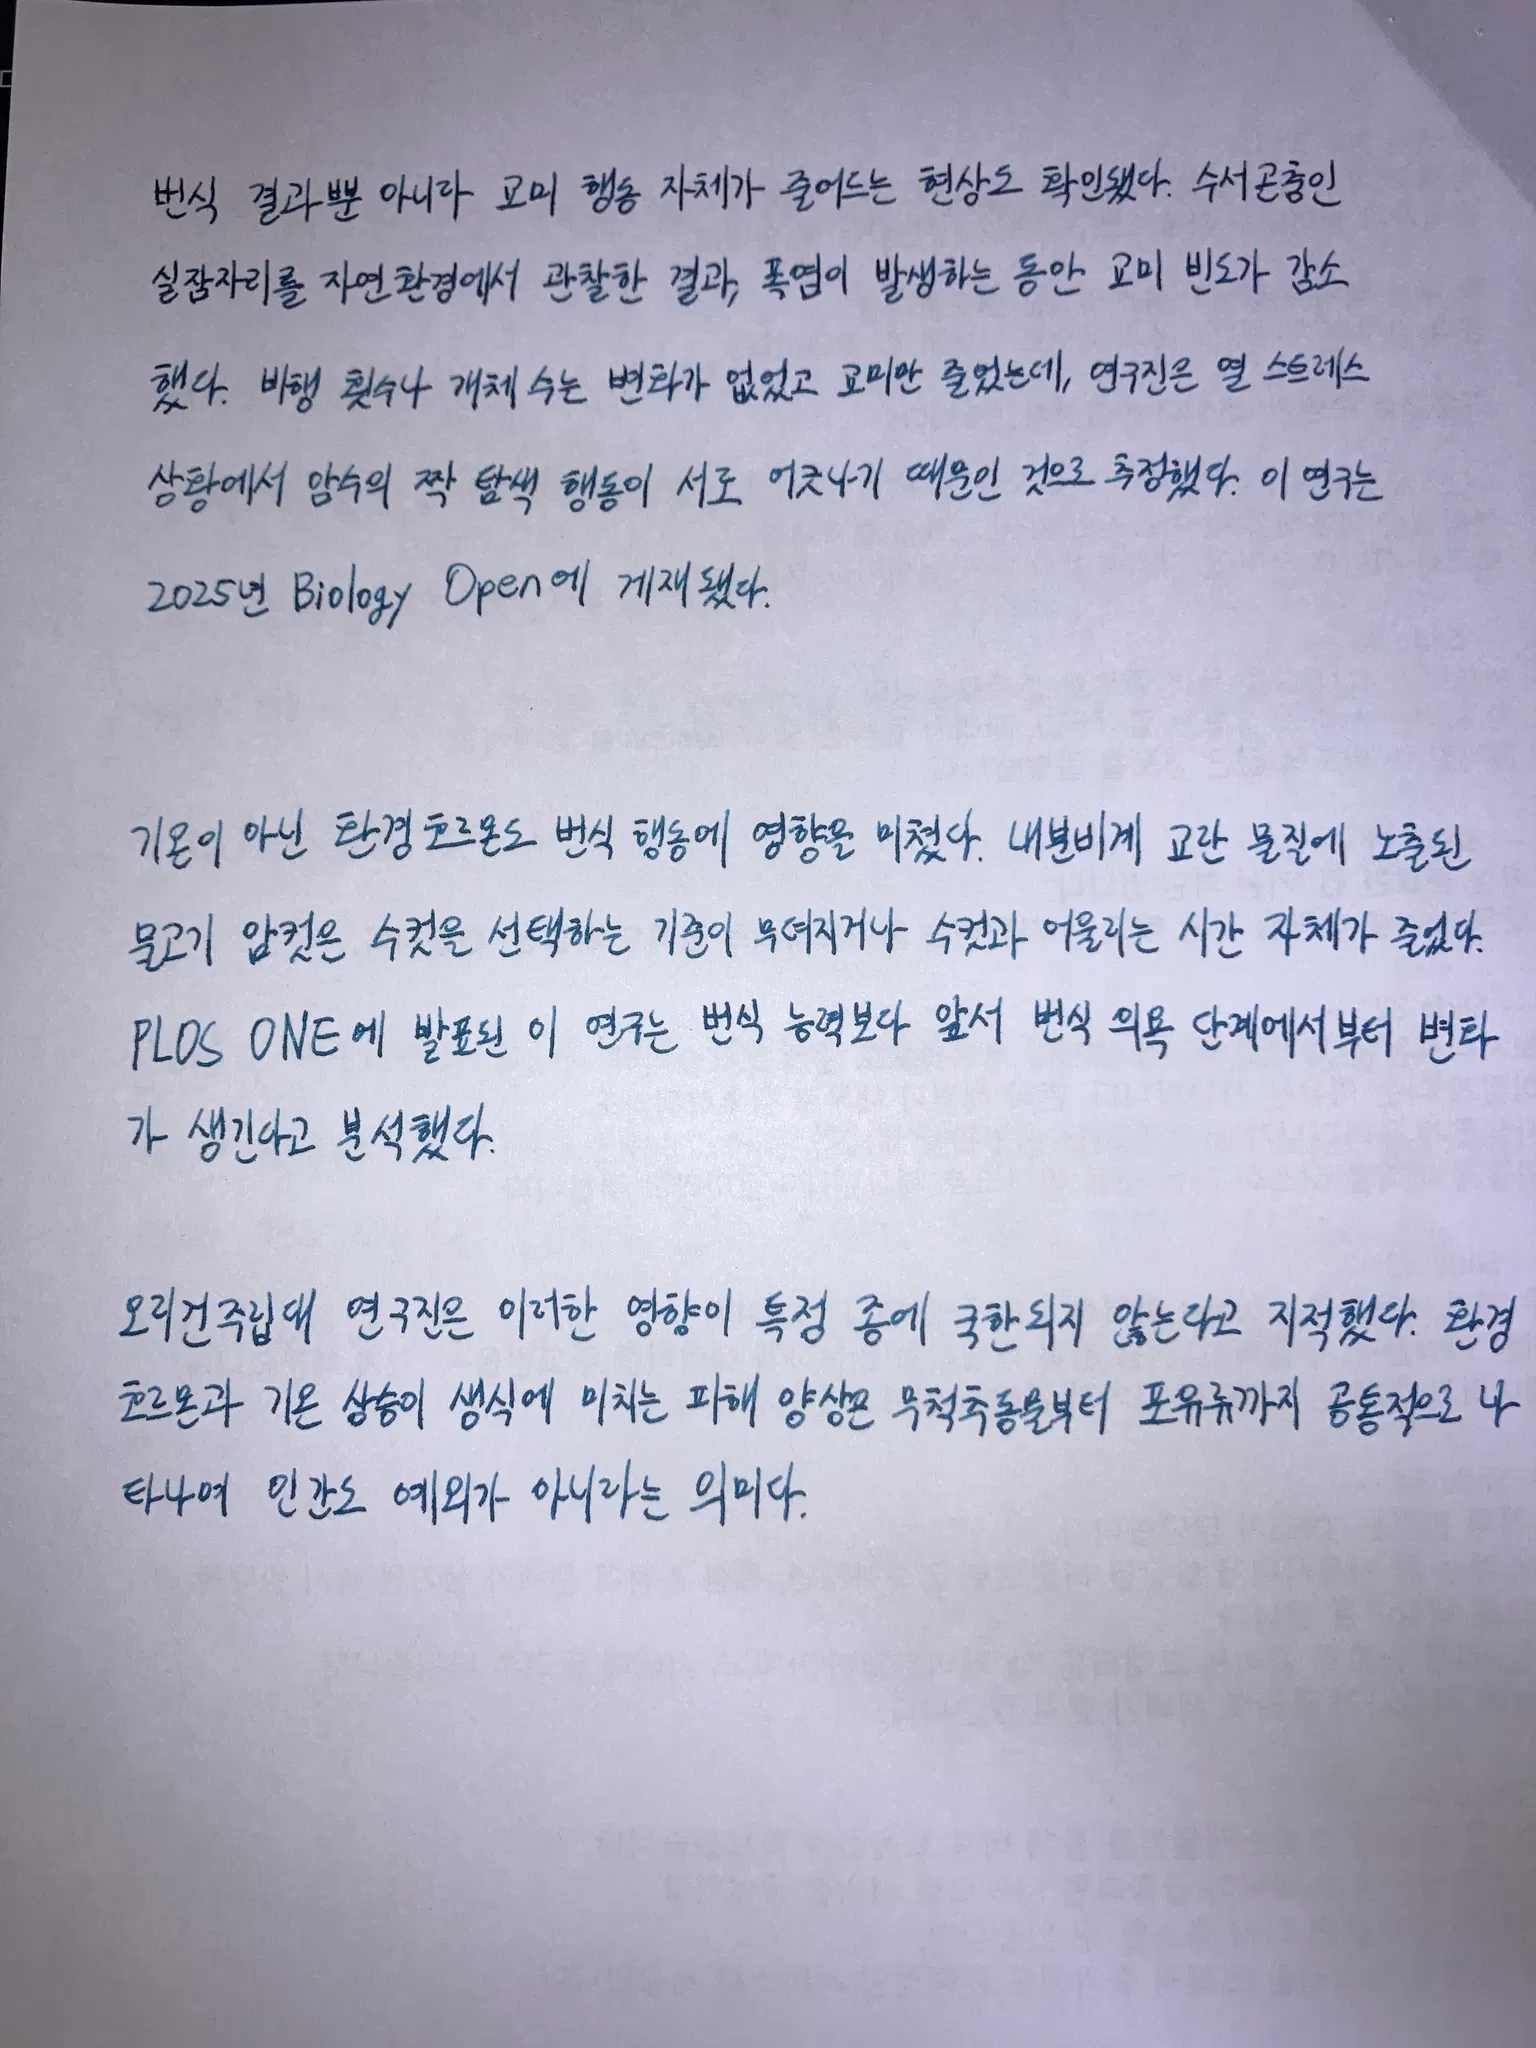 번식 결과뿐 아니라 교미 행동 자체가 줄어드는 현상도 확인됐다. 수서곤충인
실잠자리를 자연환경에서 관찰한 결과, 폭염이 발생하는 동안 교미 빈도가 감소
했다. 비행 횟수나 개체 수는 변화가 없었고 교미만 줄었는데, 연구진은 열 스트레스
상황에서 암수의 짝 탐색 행동이 서로 어긋나기 때문인 것으로 추정했다. 이 연구는
2025년 Biology Open에 게재됐다.
기온이 아닌 환경호르몬도 번식 행동에 영향을 미쳤다. 내분비계 교란 물질에 노출된
물고기 암컷은 수컷을 선택하는 기준이 무뎌지거나 수컷과 어울리는 시간 자체가 줄었다.
PLOS ONE에 발표된 이 연구는 번식 능력보다 앞서 번식 의욕 단계에서부터 변화
가 생긴다고 분석했다.
오리건주립대 연구진은 이러한 영향이 특정 종에 국한되지 않는다고 지적했다. 환경
호르몬과 기온 상승이 생식에 미치는 피해 양상은 무척추동물부터 포유류까지 공통적으로 나
타나며 인간도 예외가 아니라는 의미다.